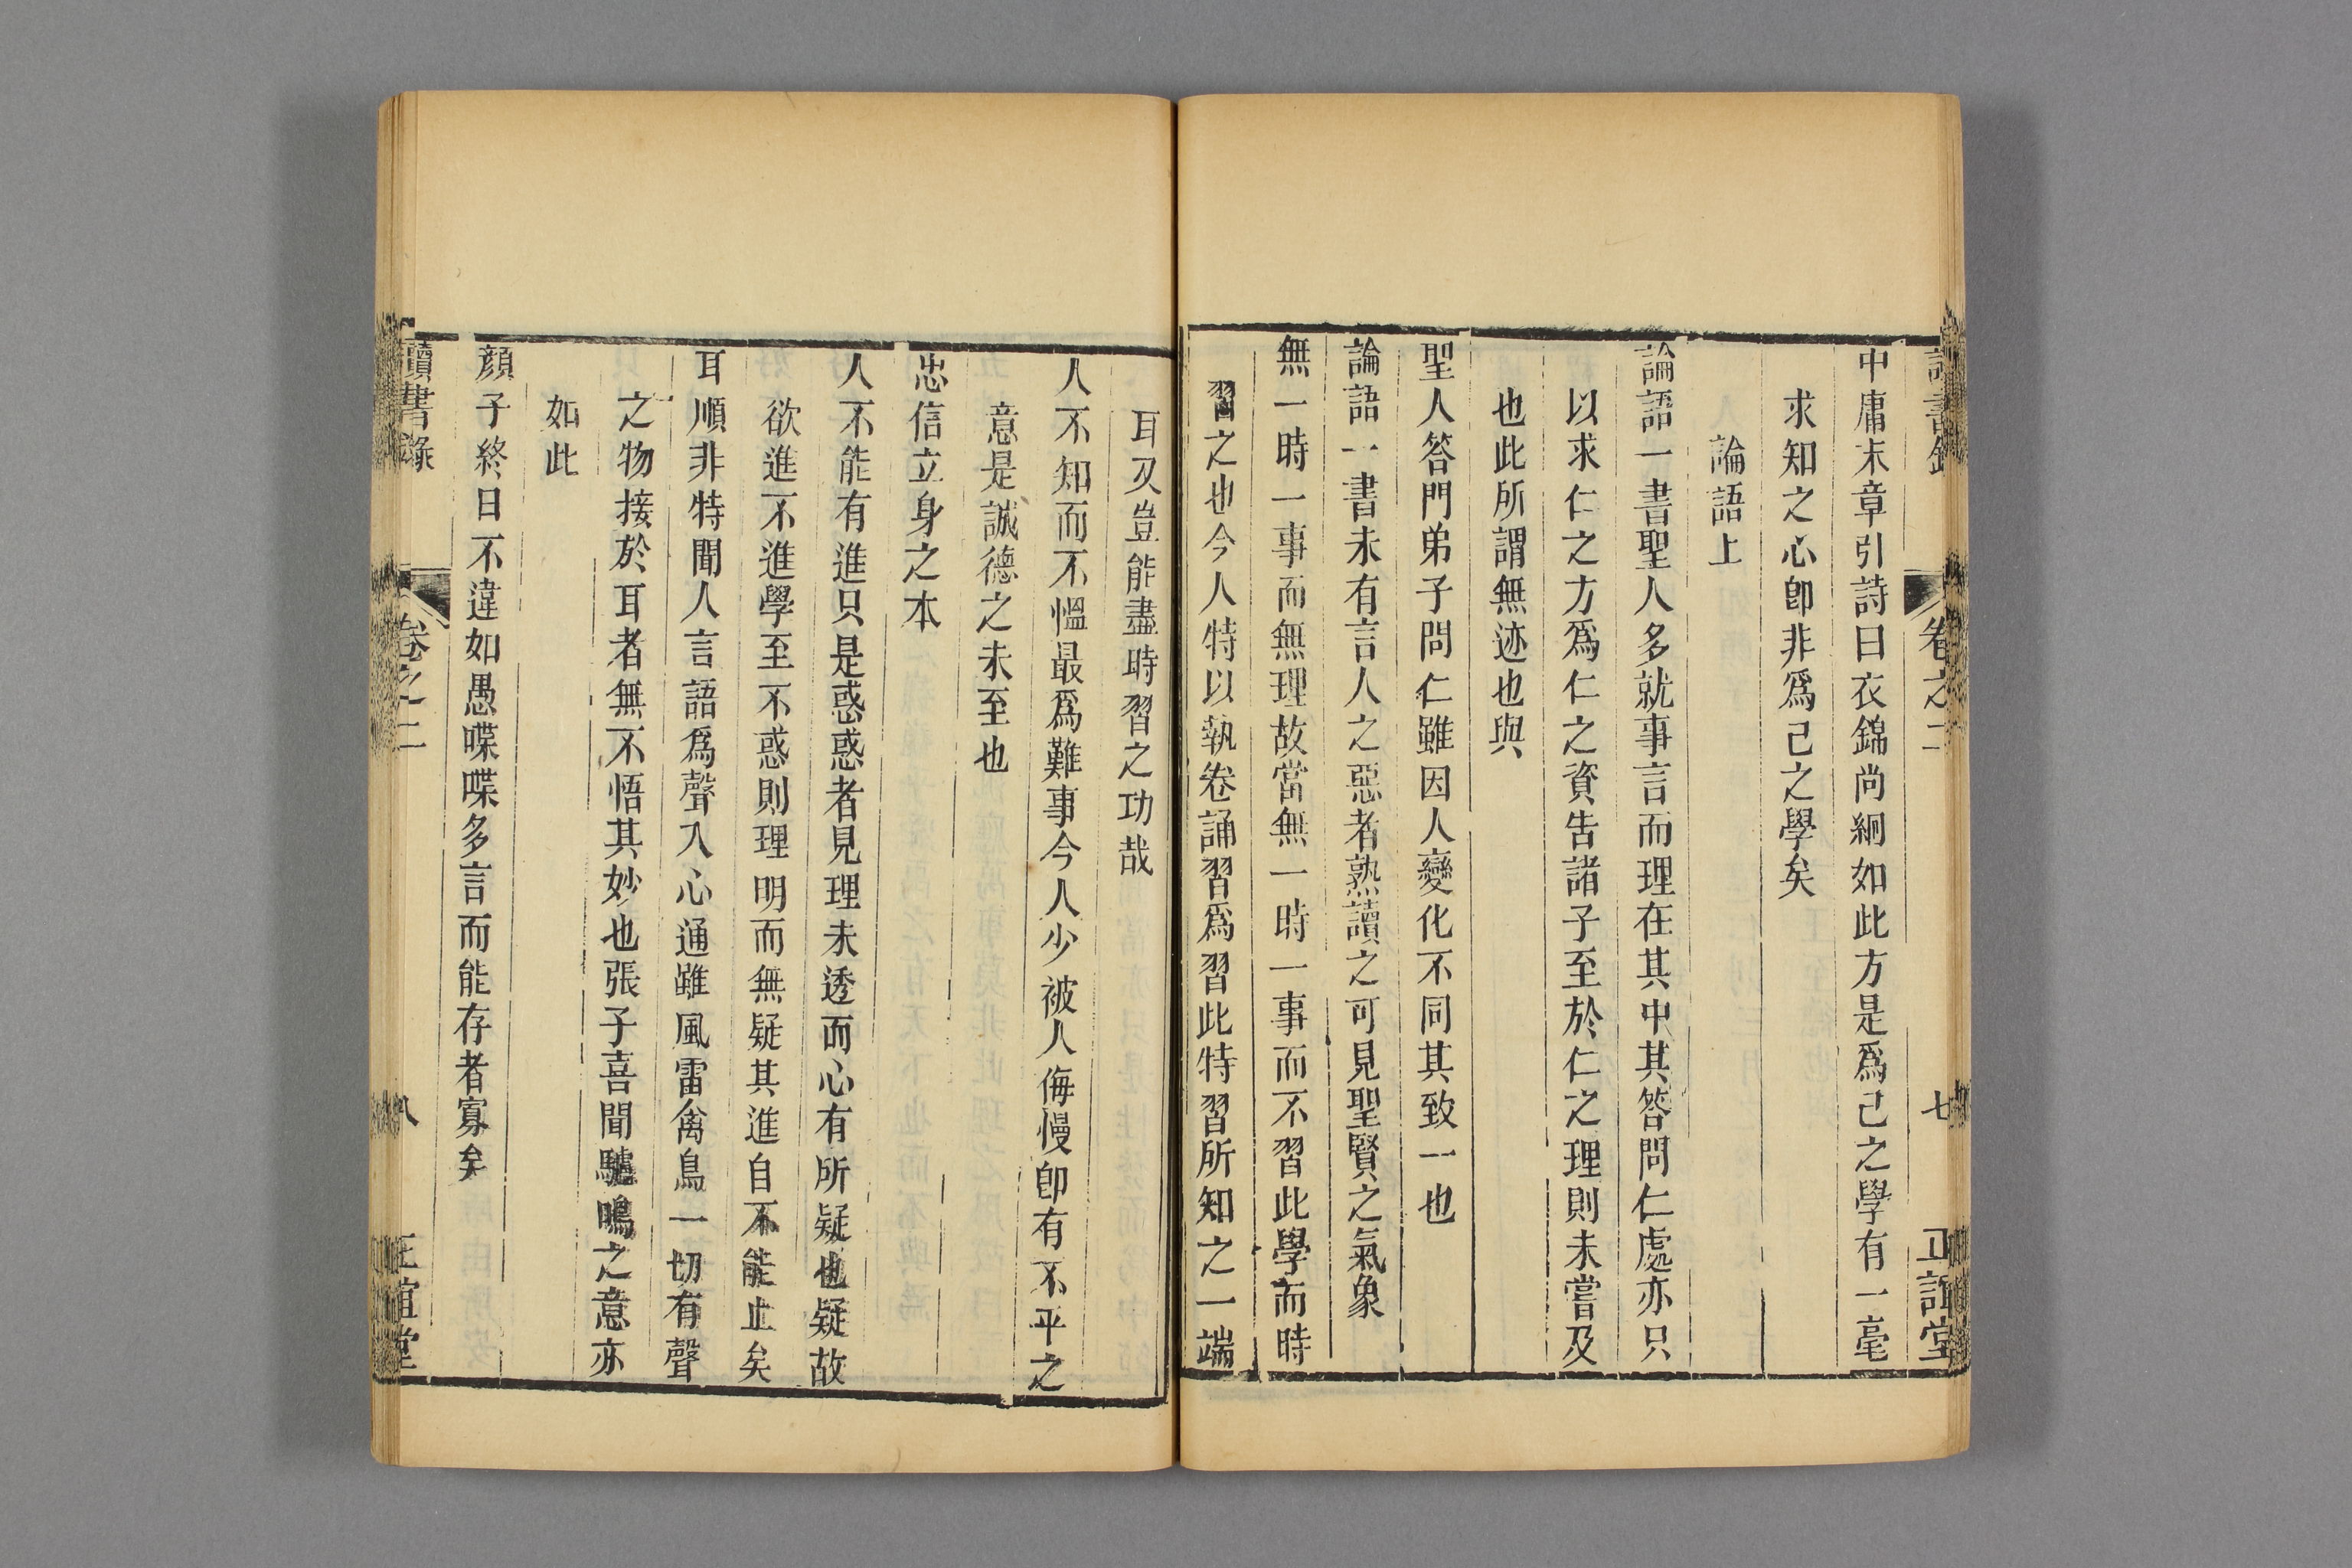 讀書錄 卷之二 七 正誼堂
中庸末章引詩曰衣錦尚絅如此方是爲己之學有一毫
求知之心卽非爲己之學矣
論語上
論語一書聖人多就事言而理在其中其答問仁處亦只
以求仁之方爲仁之資告諸子至於仁之理則未嘗及
也此所謂無迹也與
聖人答門弟子問仁雖因人變化不同其致一也
論語一書未有言人之惡者熟讀之可見聖賢之氣象
無一時一事而無理故當無一時一事而不習此學而時
習之也今人特以執卷誦習爲習此特習所知之一端
耳又豈能盡時習之功哉
人不知而不慍最爲難事今人少被人侮慢卽有不平之
意是誠德之未至也
忠信立身之本
人不能有進只是惑惑者見理未透而心有所疑也疑故
欲進不進學至不惑則理明而無疑其進自不能止矣
耳順非特聞人言語爲聲入心通雖風雷禽鳥一切有聲
之物接於耳者無不悟其妙也張子喜聞驢鳴之意亦
如此
顏子終日不違如愚喋喋多言而能存者寡矣
讀書錄 卷之二 八 正誼堂